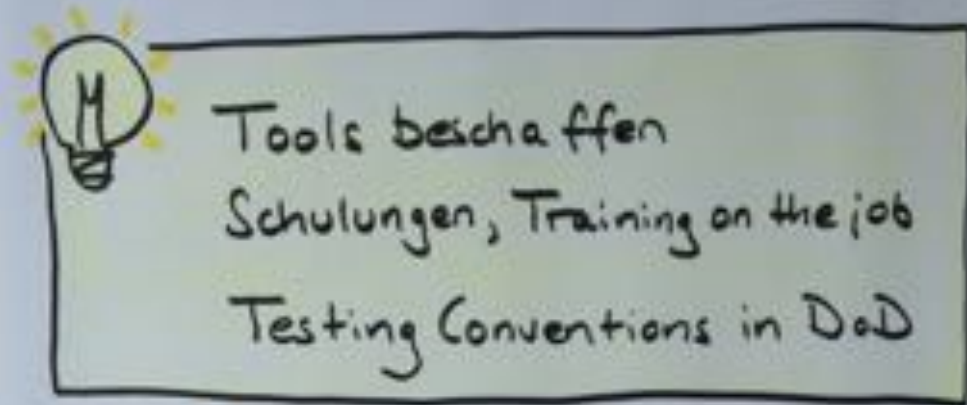 Tools beschaffen
Schulungen, Training on the job
Testing Conventions in DoD